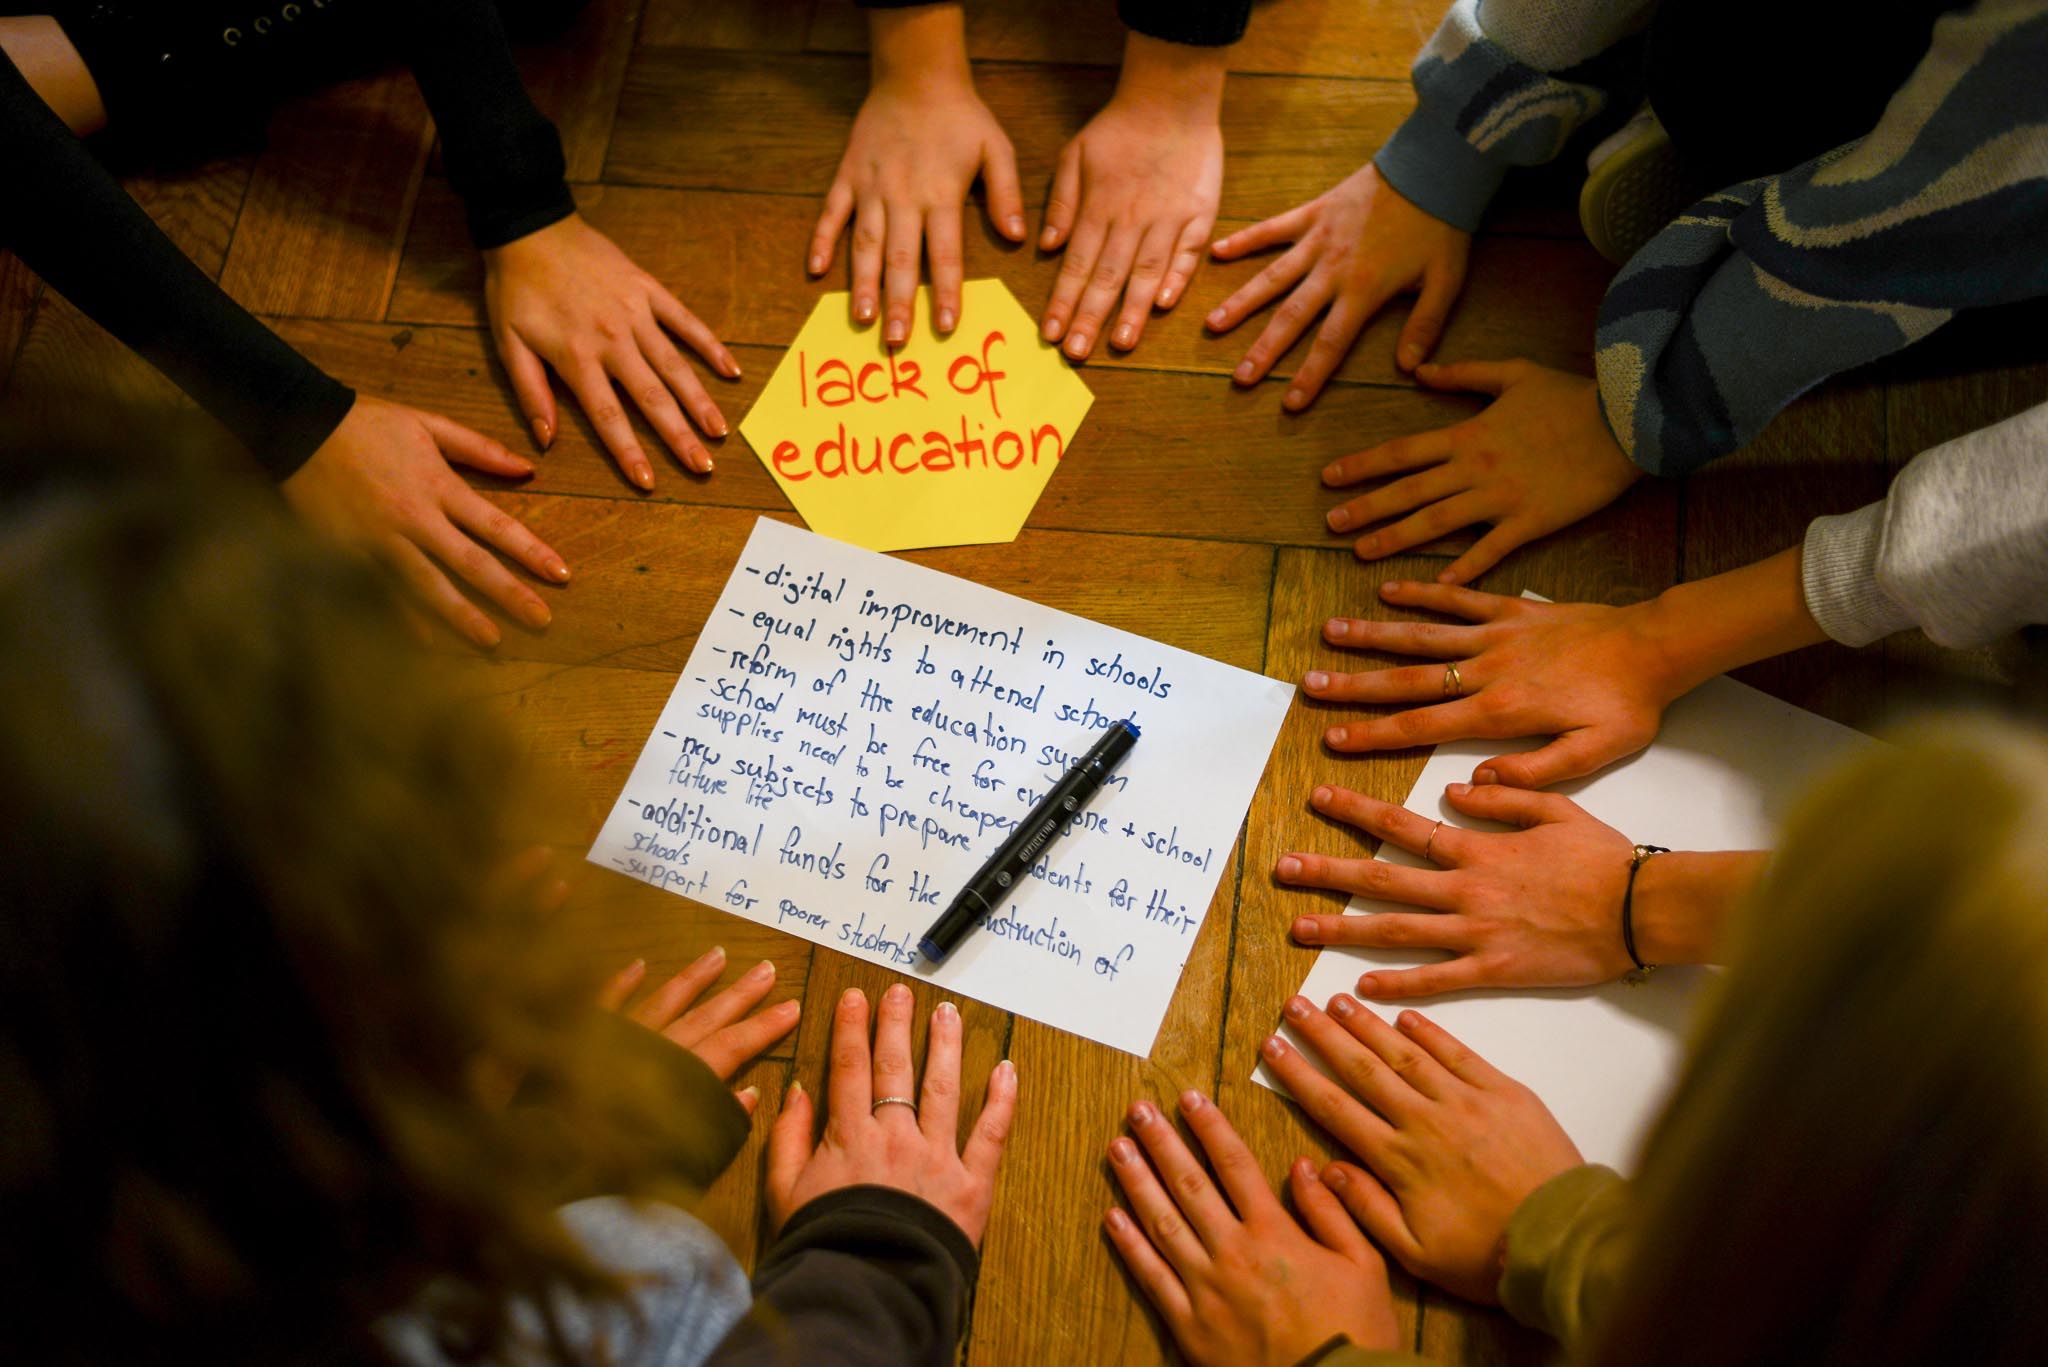 lack of
education
- digital improvement in schools
- equal rights to attend school
- reform of the education system
- school must be free for everyone + school
supplies need to be cheaper
- new subjects to prepare students for their
future life
- additional funds for the construction of
schools
- support for poorer students